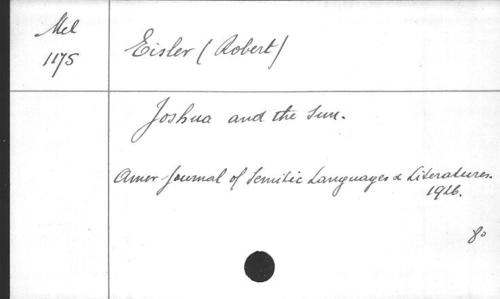 Mel
1175
Eisler (Robert)
Joshua and the Sun.
Amer Journal of Semitic Languages & Literatures.
1926.
8o